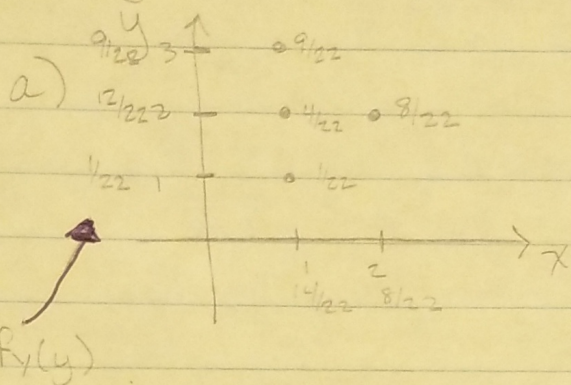 y
9/22 3 9/22
a)
12/22 2 4/22 8/22
1/22 1 1/22
x
1 2
14/22 8/22
fy(y)